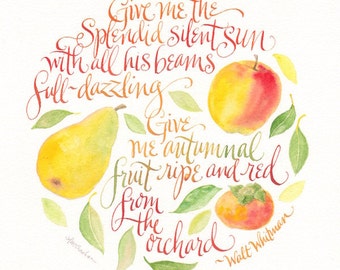 Give me the
Splendid silent Sun
with all his beams
full-dazzling
Give
me autumnal
fruit ripe and red
from
the
orchard
~Walt Whitman